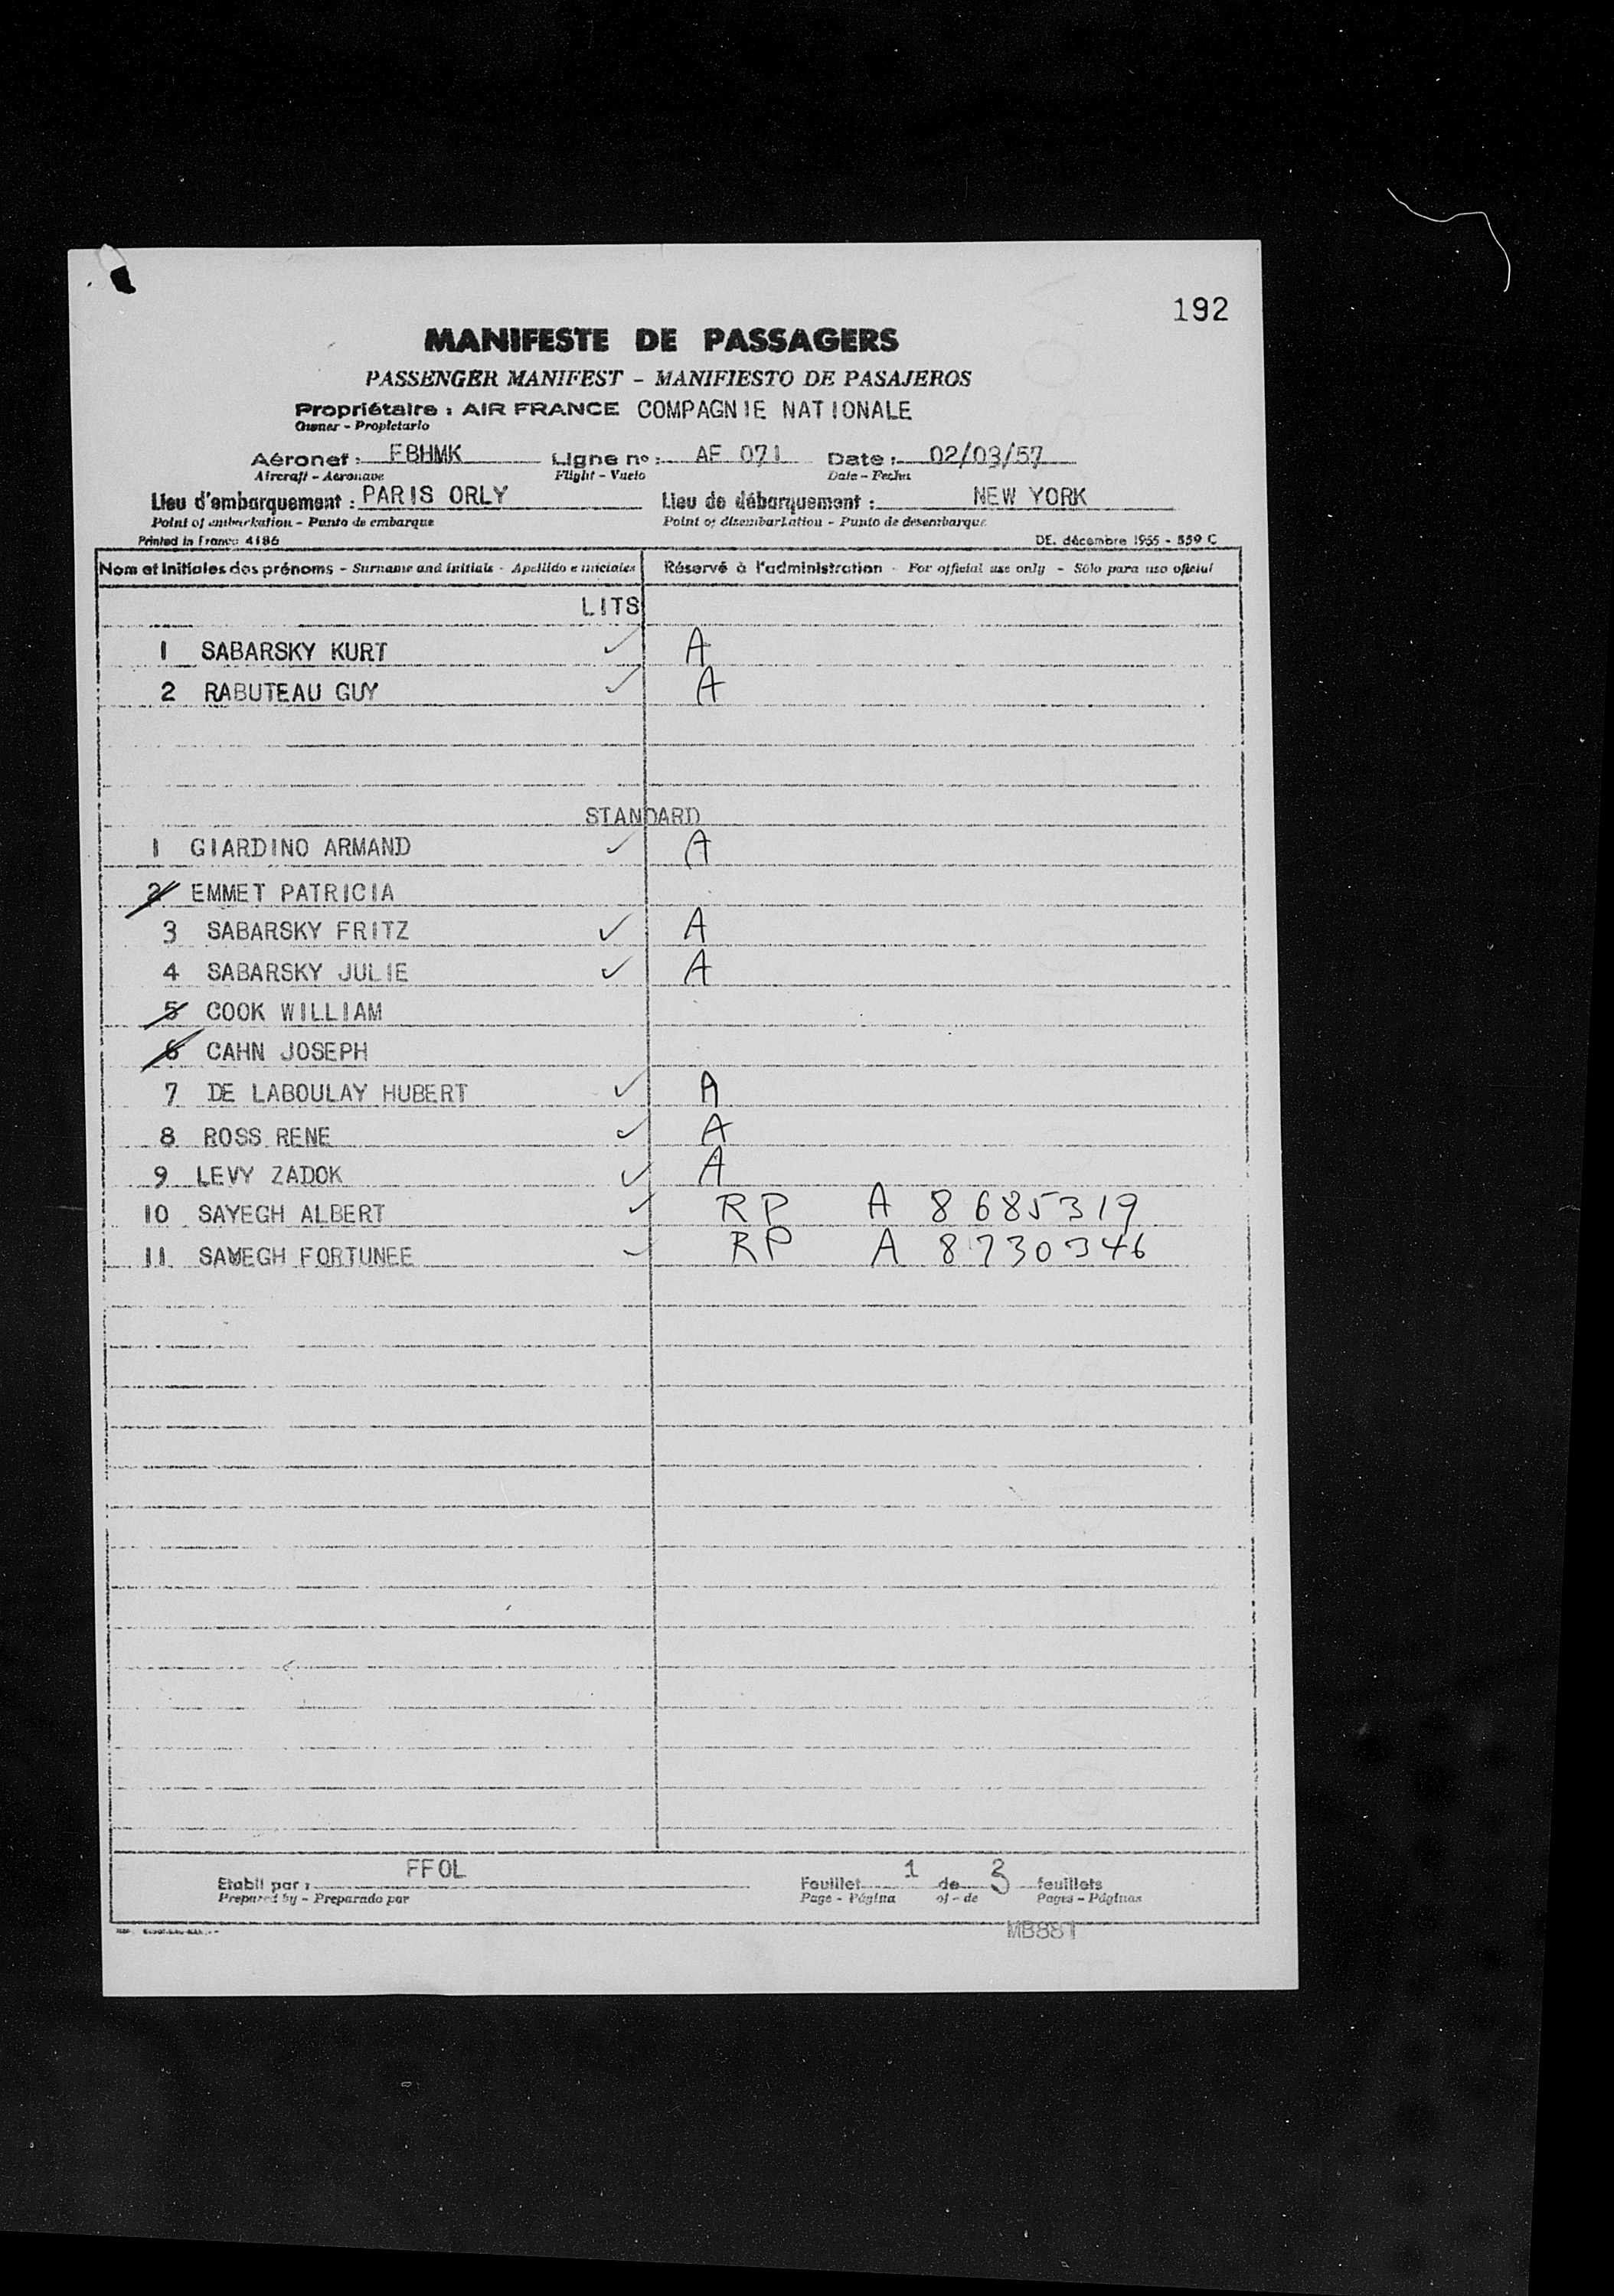 192
MANIFESTE DE PASSAGERS
PASSENGER MANIFEST - MANIFIESTO DE PASAJEROS
Propriétaire : AIR FRANCE COMPAGNIE NATIONALE
Owner - Propietario
Aéronef : FBHMK Ligne nº : AF 071 Date : 02/03/57
Aircraft - Aeronave Flight - Vuelo Date - Fecha
Lieu d'embarquement : PARIS ORLY Lieu de débarquement : NEW YORK
Point of embarkation - Punto de embarque Point of disembarkation - Punto de desembarque
Printed in France 4186 DE. décembre 1955 - 559 C
Nom et initiales des prénoms - Surname and initials - Apellido e iniciales Réservé à l'administration - For official use only - Sólo para uso oficial
LITS
1 SABARSKY KURT ✓ A
2 RABUTEAU GUY ✓ A
STANDARD
1 GIARDINO ARMAND ✓ A
2 EMMET PATRICIA
3 SABARSKY FRITZ ✓ A
4 SABARSKY JULIE ✓ A
5 COOK WILLIAM
6 CAHN JOSEPH
7 DE LABOULAY HUBERT ✓ A
8 ROSS RENE ✓ A
9 LEVY ZADOK ✓ A
10 SAYEGH ALBERT ✓ RP A 8 685319
11 SAYEGH FORTUNEE ✓ RP A 8 730346
Etabli par : FFOL Feuillet 1 de 3 feuillets
Prepared by - Preparado por Page - Página of - de Pages - Páginas
MB881